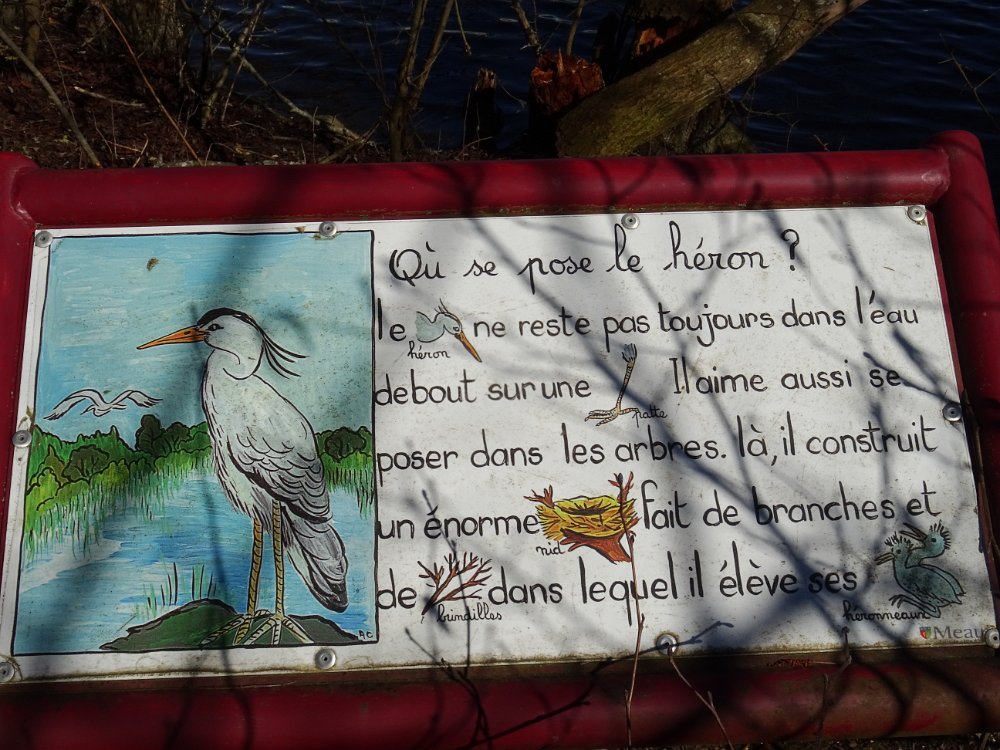 Où se pose le héron ?
le héron ne reste pas toujours dans l'eau
debout sur une patte Il aime aussi se
poser dans les arbres. là, il construit
un énorme nid fait de branches et
de brindilles dans lequel il élève ses héronneaux
AC